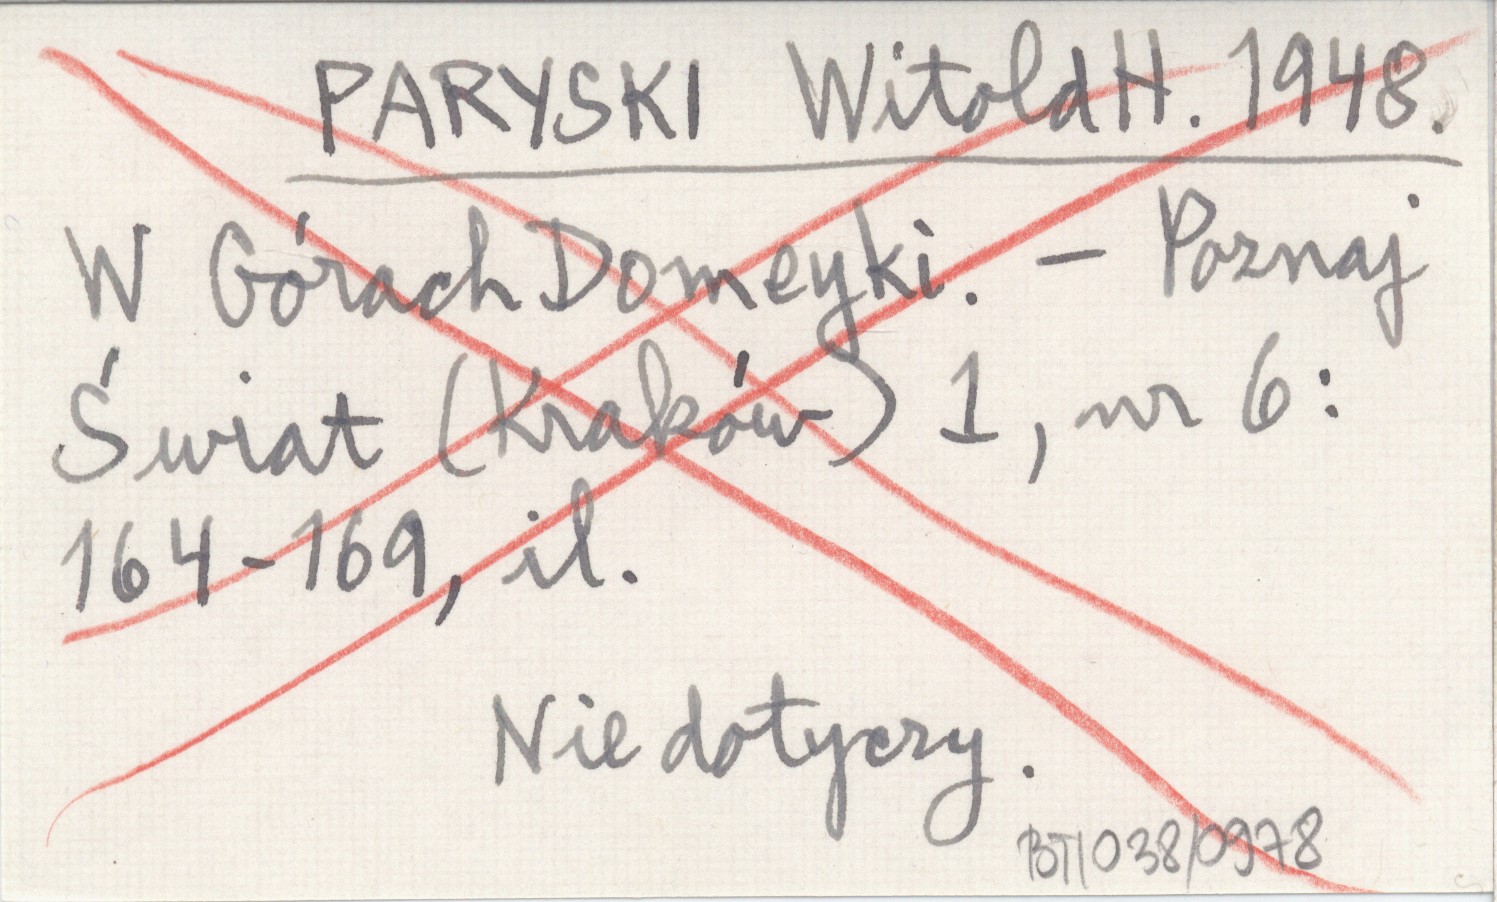 PARYSKI Witold H. 1948.
W Górach Domeyki. - Poznaj
Świat (Kraków) 1, nr 6:
164-169, il.
Nie dotyczy.
BT/038/0978